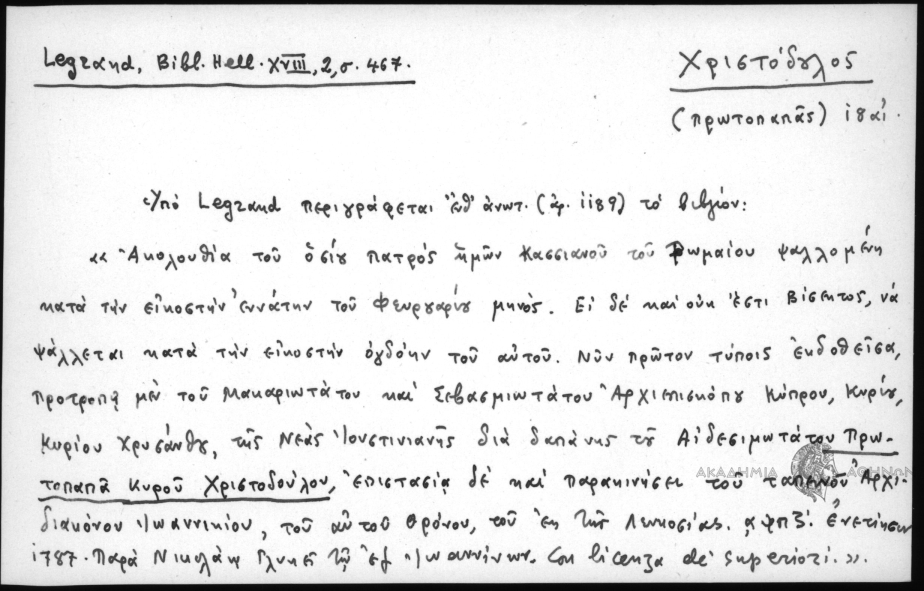 Legrand, Bibl. Hell. XVIII, 2, σ. 467.
Χριστόδουλος
(πρωτοπαπᾶς) ι8αι.
Ὑπό Legrand περιγράφεται ἔνθ' ἀνωτ. (ἀρ. 1189) τό βιβλίον:
«Ἀκολουθία τοῦ ὁσίου πατρός ἡμῶν Κασσιανοῦ τοῦ Ῥωμαίου ψαλλομένη
κατά τήν εἰκοστήν ἐννάτην τοῦ Φευρουαρίου μηνός. Εἰ δέ καί οὐκ ἔστι βίσεκτος, νά
ψάλλεται κατά τήν εἰκοστήν ὀγδόην τοῦ αὐτοῦ. Νῦν πρῶτον τύποις ἐκδοθεῖσα,
προτροπῇ μέν τοῦ Μακαριωτάτου καί Σεβασμιωτάτου Ἀρχιεπισκόπου Κύπρου, Κυρίου,
Κυρίου Χρυσάνθου, τῆς Νεᾶς Ἰουστινιανῆς διά δαπάνης τοῦ Αἰδεσιμωτάτου Πρω-
τοπαπᾶ Κυροῦ Χριστοδούλου, ἐπιστασίᾳ δέ καί παρακινήσει τοῦ ταπεινοῦ Ἀρχι-
διακόνου Ἰωαννικίου, τοῦ αὐτοῦ θρόνου, τοῦ ἐκ τῆς Λευκοσίας. ͵αψπζ΄. Ἐνετίησιν
1787. Παρά Νικολάῳ Γλυκεῖ τῷ ἐξ Ἰωαννίνων. Con licenza de' superiori.».
ΑΚΑΔΗΜΙΑ ΑΘΗΝΩΝ